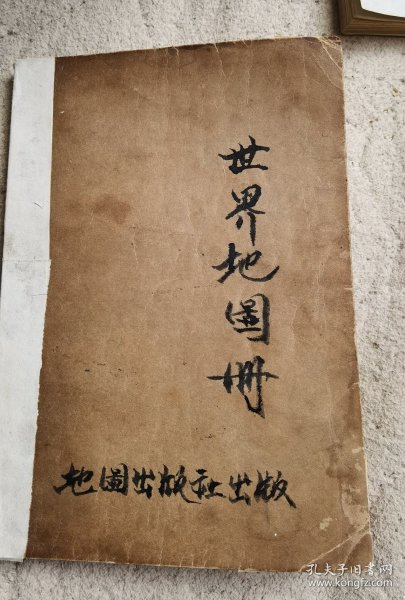 世界地圖冊
地圖出版社出版
孔夫子旧书网
www.kongfz.com